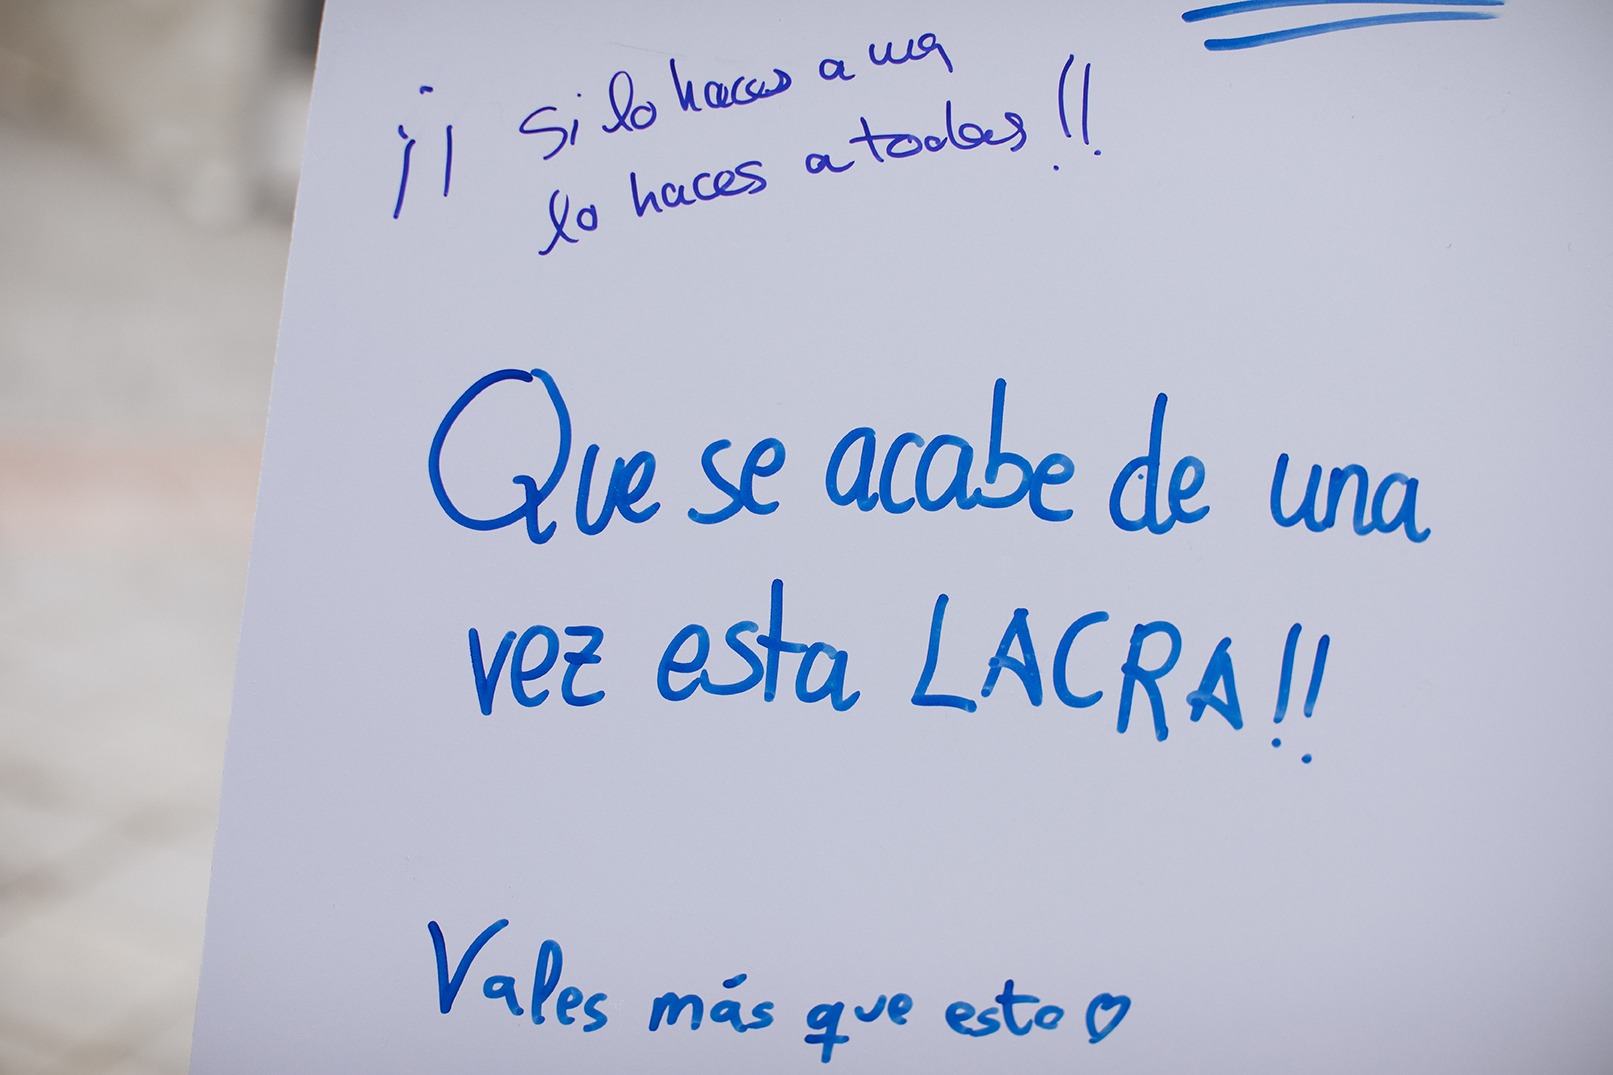 ¡¡ Si lo haces a una
lo haces a todas!!
Que se acabe de una
vez esta LACRA!!
Vales más que esto♡